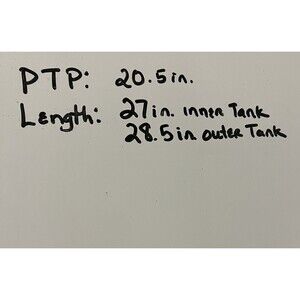 PTP: 20.5in.
Length: 27in. inner Tank
28.5in outer Tank